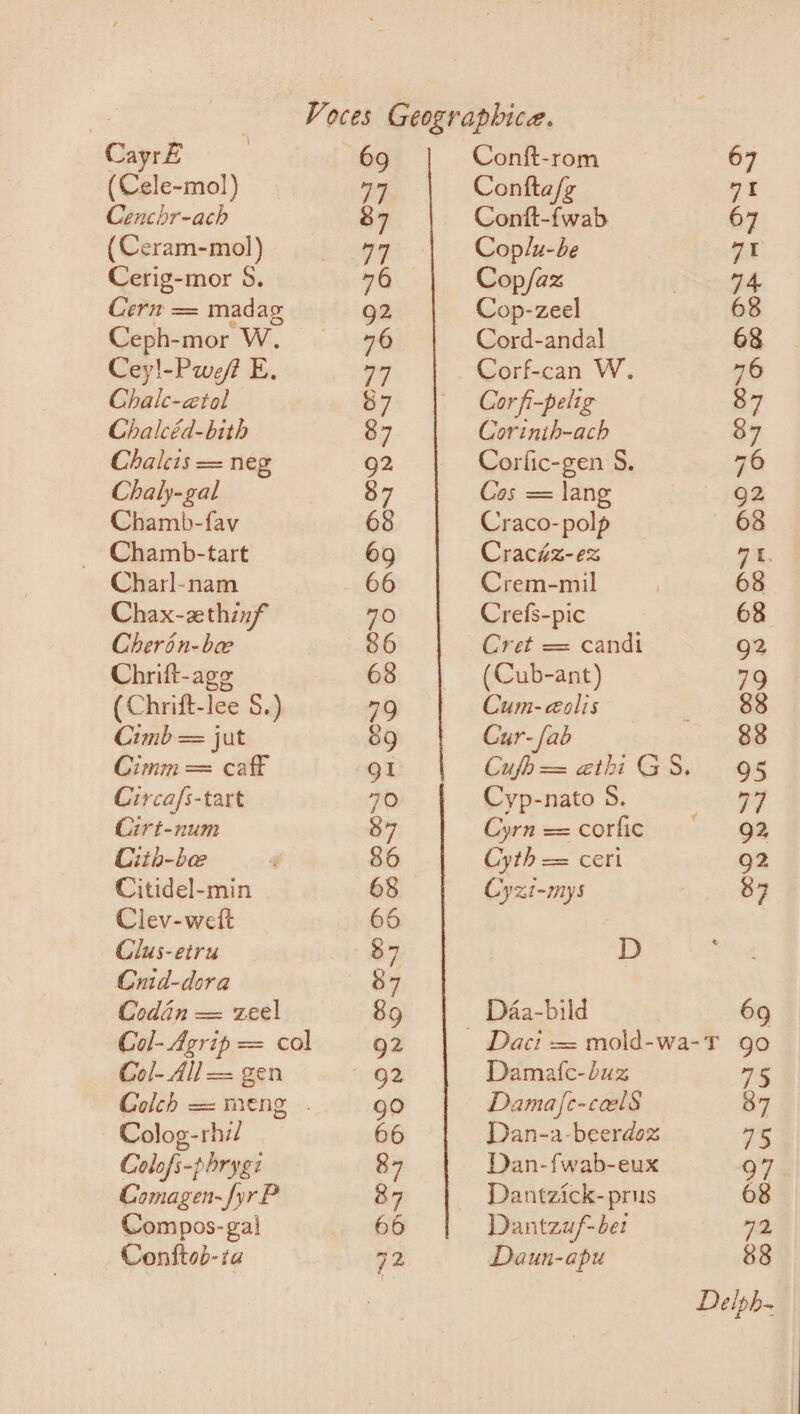 Voces Geographicæ.
CayrE 69
(Cele-mol) 77
Cenchr-ach 87
(Ceram-mol) 77
Cerig-mor S. 76
Cern = madag 92
Ceph-mor W. 76
Ceyl-Pweſt E. 77
Chalc-ætol 87
Chalcéd-bith 87
Chalcis = neg 92
Chaly-gal 87
Chamb-ſav 68
Chamb-tart 69
Charl-nam 66
Chax-æthinf 70
Cherón-bœ 86
Chriſt-agg 68
(Chriſt-lee S.) 79
Cimb = jut 89
Cimm = caff 91
Circaſs-tart 70
Cirt-num 87
Cith-bœ 86
Citidel-min 68
Clev-weſt 66
Clus-etru 87
Cnid-dora 87
Codán = zeel 89
Col-Agrip = col 92
Col-All = gen 92
Colch = meng 90
Colog-rhil 66
Coloſs-phrygi 87
Comagen-ſyrP 87
Compos-gal 66
Conſtob-ia 72
Conſt-rom 67
Conſtaſg 71
Conſt-ſwab 67
Coplu-be 71
Copſaz 74
Cop-zeel 68
Cord-andal 68
Corf-can W. 76
Corſi-pelig 87
Corinth-ach 87
Corſic-gen S. 76
Cos = lang 92
Craco-polp 68
Cracúz-ez 71
Crem-mil 68
Creſs-pic 68
Cret = candi 92
(Cub-ant) 79
Cum-æolis 88
Cur-ſab 88
Cuſh = æthi G S. 95
Cyp-nato S. 77
Cyrn = corſic 92
Cyth = ceri 92
Cyzi-mys 87
D
Dáa-bild 69
Daci = mold-wa-T 90
Damaſc-buz 75
Damaſc-cœlS 87
Dan-a-beerdoz 75
Dan-ſwab-eux 97
Dantzíck-prus 68
Dantzuf-bei 72
Daun-apu 88
Delph-